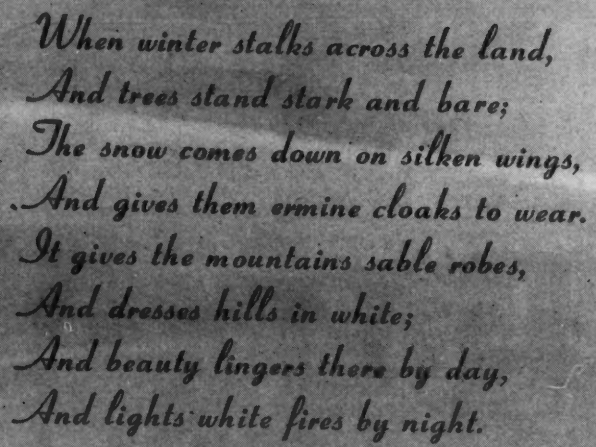 When winter stalks across the land,
And trees stand stark and bare;
The snow comes down on silken wings,
And gives them ermine cloaks to wear.
It gives the mountains sable robes,
And dresses hills in white;
And beauty lingers there by day,
And lights white fires by night.